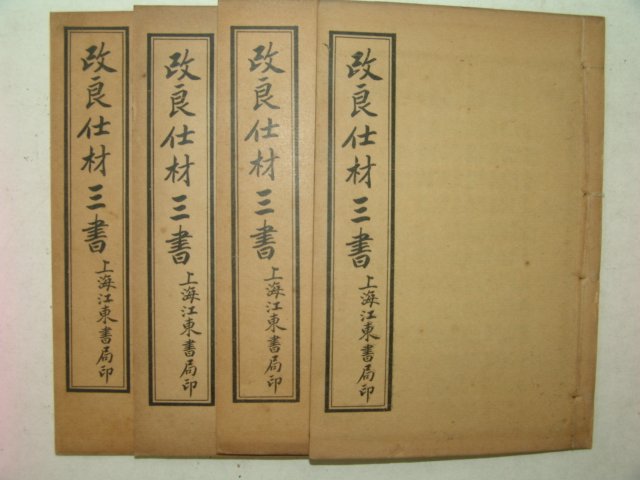 改良仕材三書 上海江東書局印
改良仕材三書 上海江東書局印
改良仕材三書 上海江東書局印
改良仕材三書 上海江東書局印